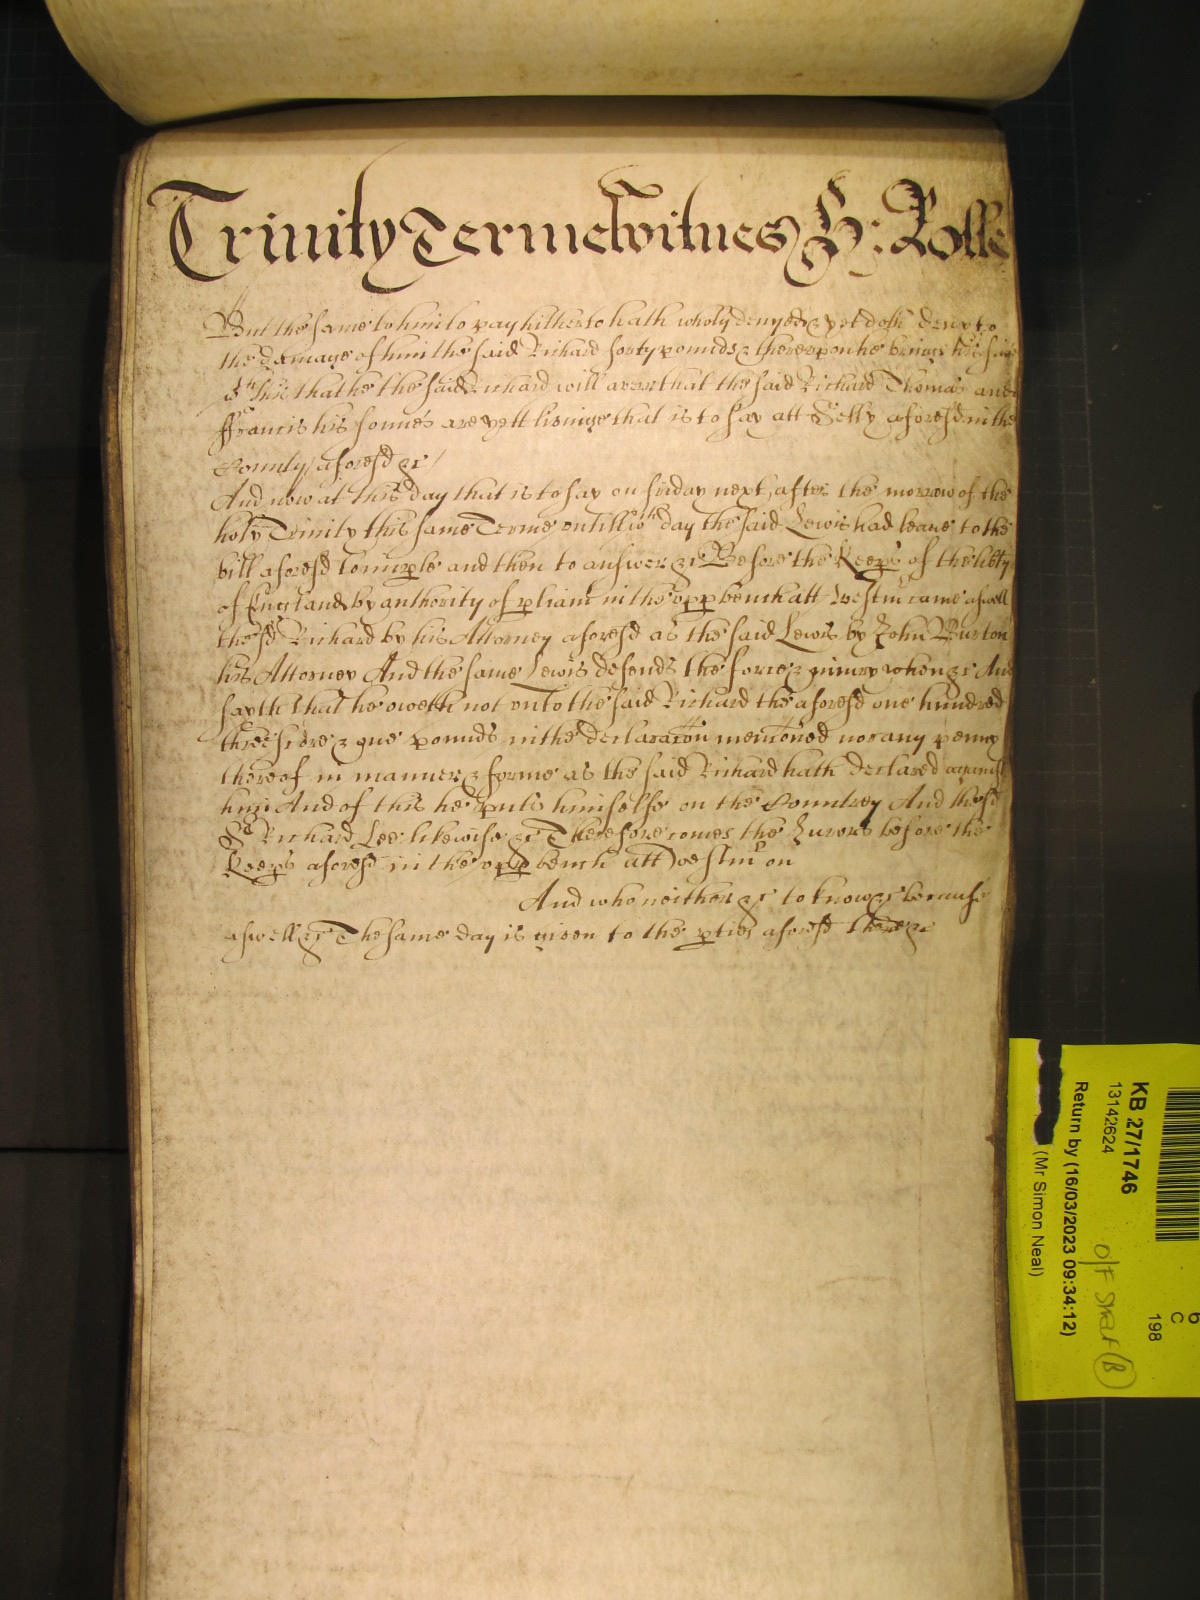 Trinity Terme Witnes H: Rolle
But the same to him to pay hitherto hath wholy denyed & yet doth deny to
the damage of him the said Richard forty pounds & thereupon he brings his suite
&c this that he the said Richard will averr that the said Richard Thomas and
ffrancis his sonnes are yett liuinge that is to say att Selby aforesd in the
County aforesd &c /
And now at this day that is to say on friday next after the morrow of the
holy Trinity this same Terme vntill wch day the said Lewis had leaue to the
bill aforesd to imple and then to answer &c Before the Keeps of the libty
of England by authority of pliamt in the vpp bench att Westmr came aswell
the sd Richard by his Attorney aforesd as the said Lewis by John Burton
his Attorney And the same Lewis defends the force & iniury when &c And
sayth that he oweth not vnto the said Richard the aforesd one hundred
three score & one pounds in the declaracon mencioned nor any penny
thereof in manner & forme as the said Richard hath declared against
him And of this he puts himselfe on the Countrey And the sd
Sr Richard Lee likewise &c Therefore comes the Jurors before the
Keeps aforesd in the vpp bench att Westmr on
And who neither &c to know &c because
aswell &c The same day is given to the pties aforesd there &c
KB 27/1746
13142624
Return by (16/03/2023 09:34:12)
(Mr Simon Neal)
6
C
198